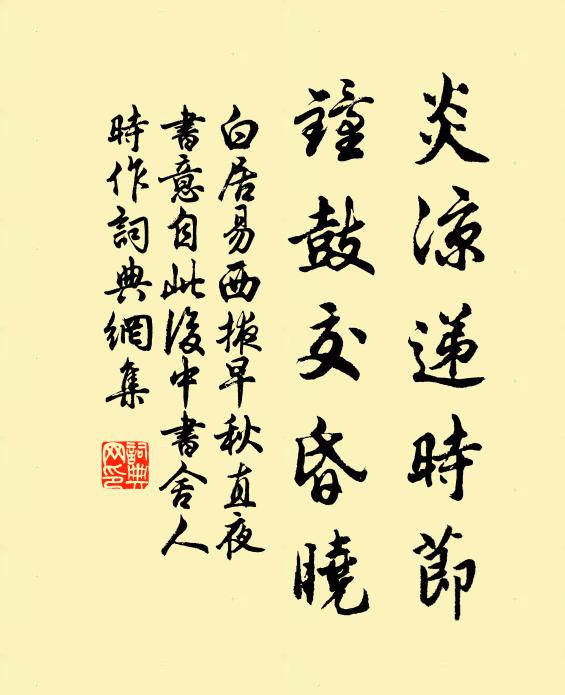 炎涼遞時節
鐘鼓交昏曉
白居易西掖早秋直夜
書意自此後中書舍人
時作詞典網集
詞典
网印